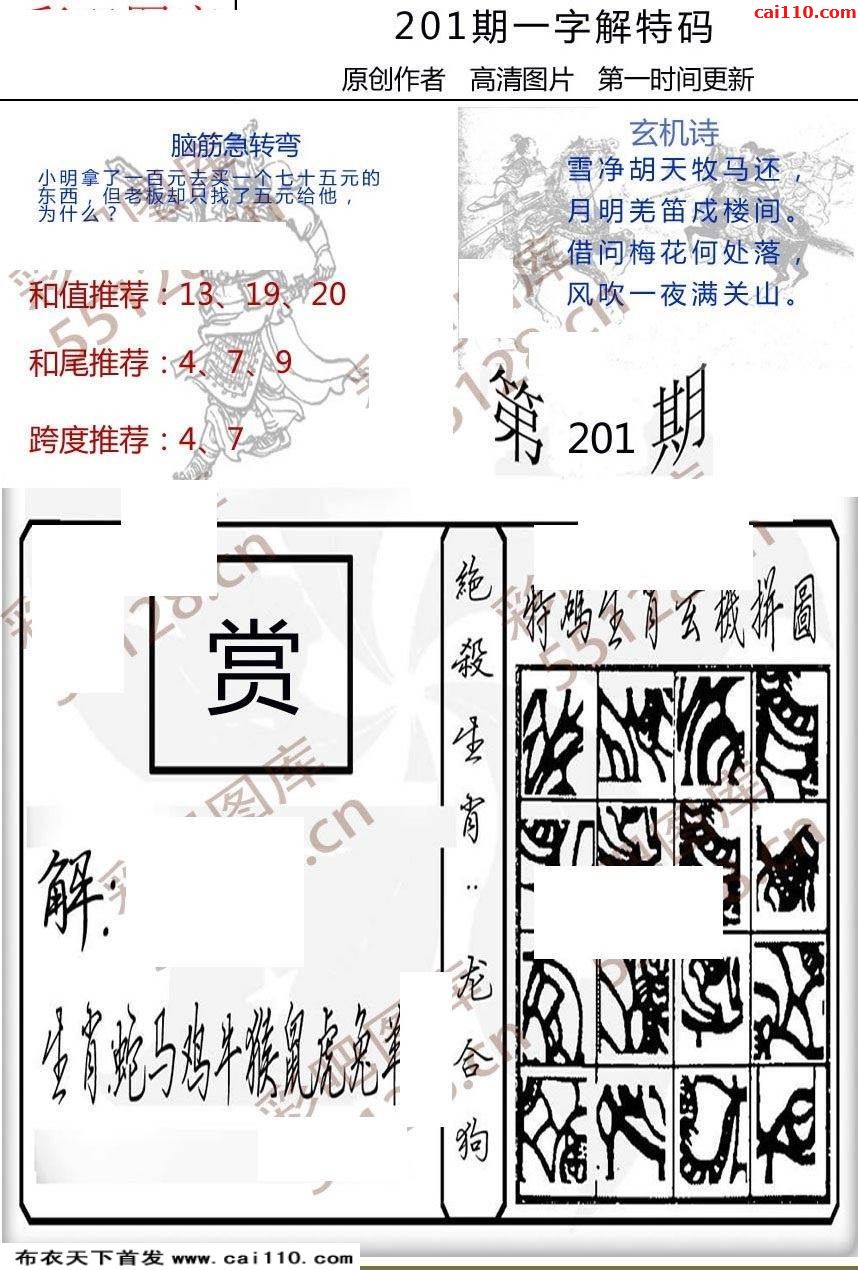 cai110.com
201期一字解特码
原创作者 高清图片 第一时间更新
脑筋急转弯
小明拿了一百元去买一个七十五元的
东西，但老板却只找了五元给他，
为什么？
和值推荐：13、19、20
和尾推荐：4、7、9
跨度推荐：4、7
玄机诗
雪净胡天牧马还，
月明羌笛戍楼间。
借问梅花何处落，
风吹一夜满关山。
第201期
赏
解：
生肖蛇马鸡牛猴鼠虎兔羊
絶殺生肖：龙合狗
特碼生肖玄機拼圖
彩吧图库
55128.cn
布衣天下首发 www.cai110.com